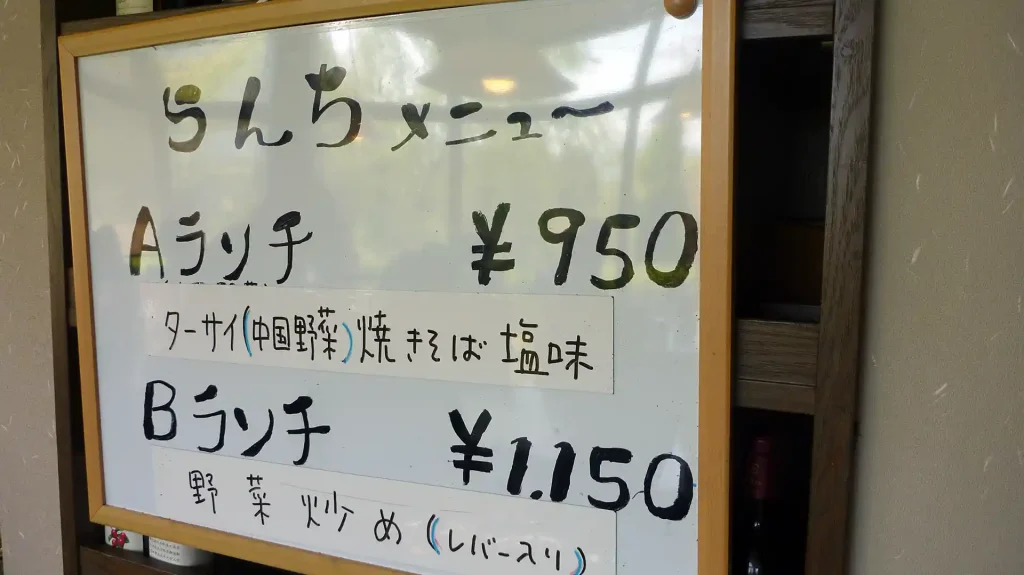 らんちメニュー
Aランチ ¥950
ターサイ(中国野菜)焼きそば塩味
Bランチ ¥1.150
野菜炒め(レバー入り)